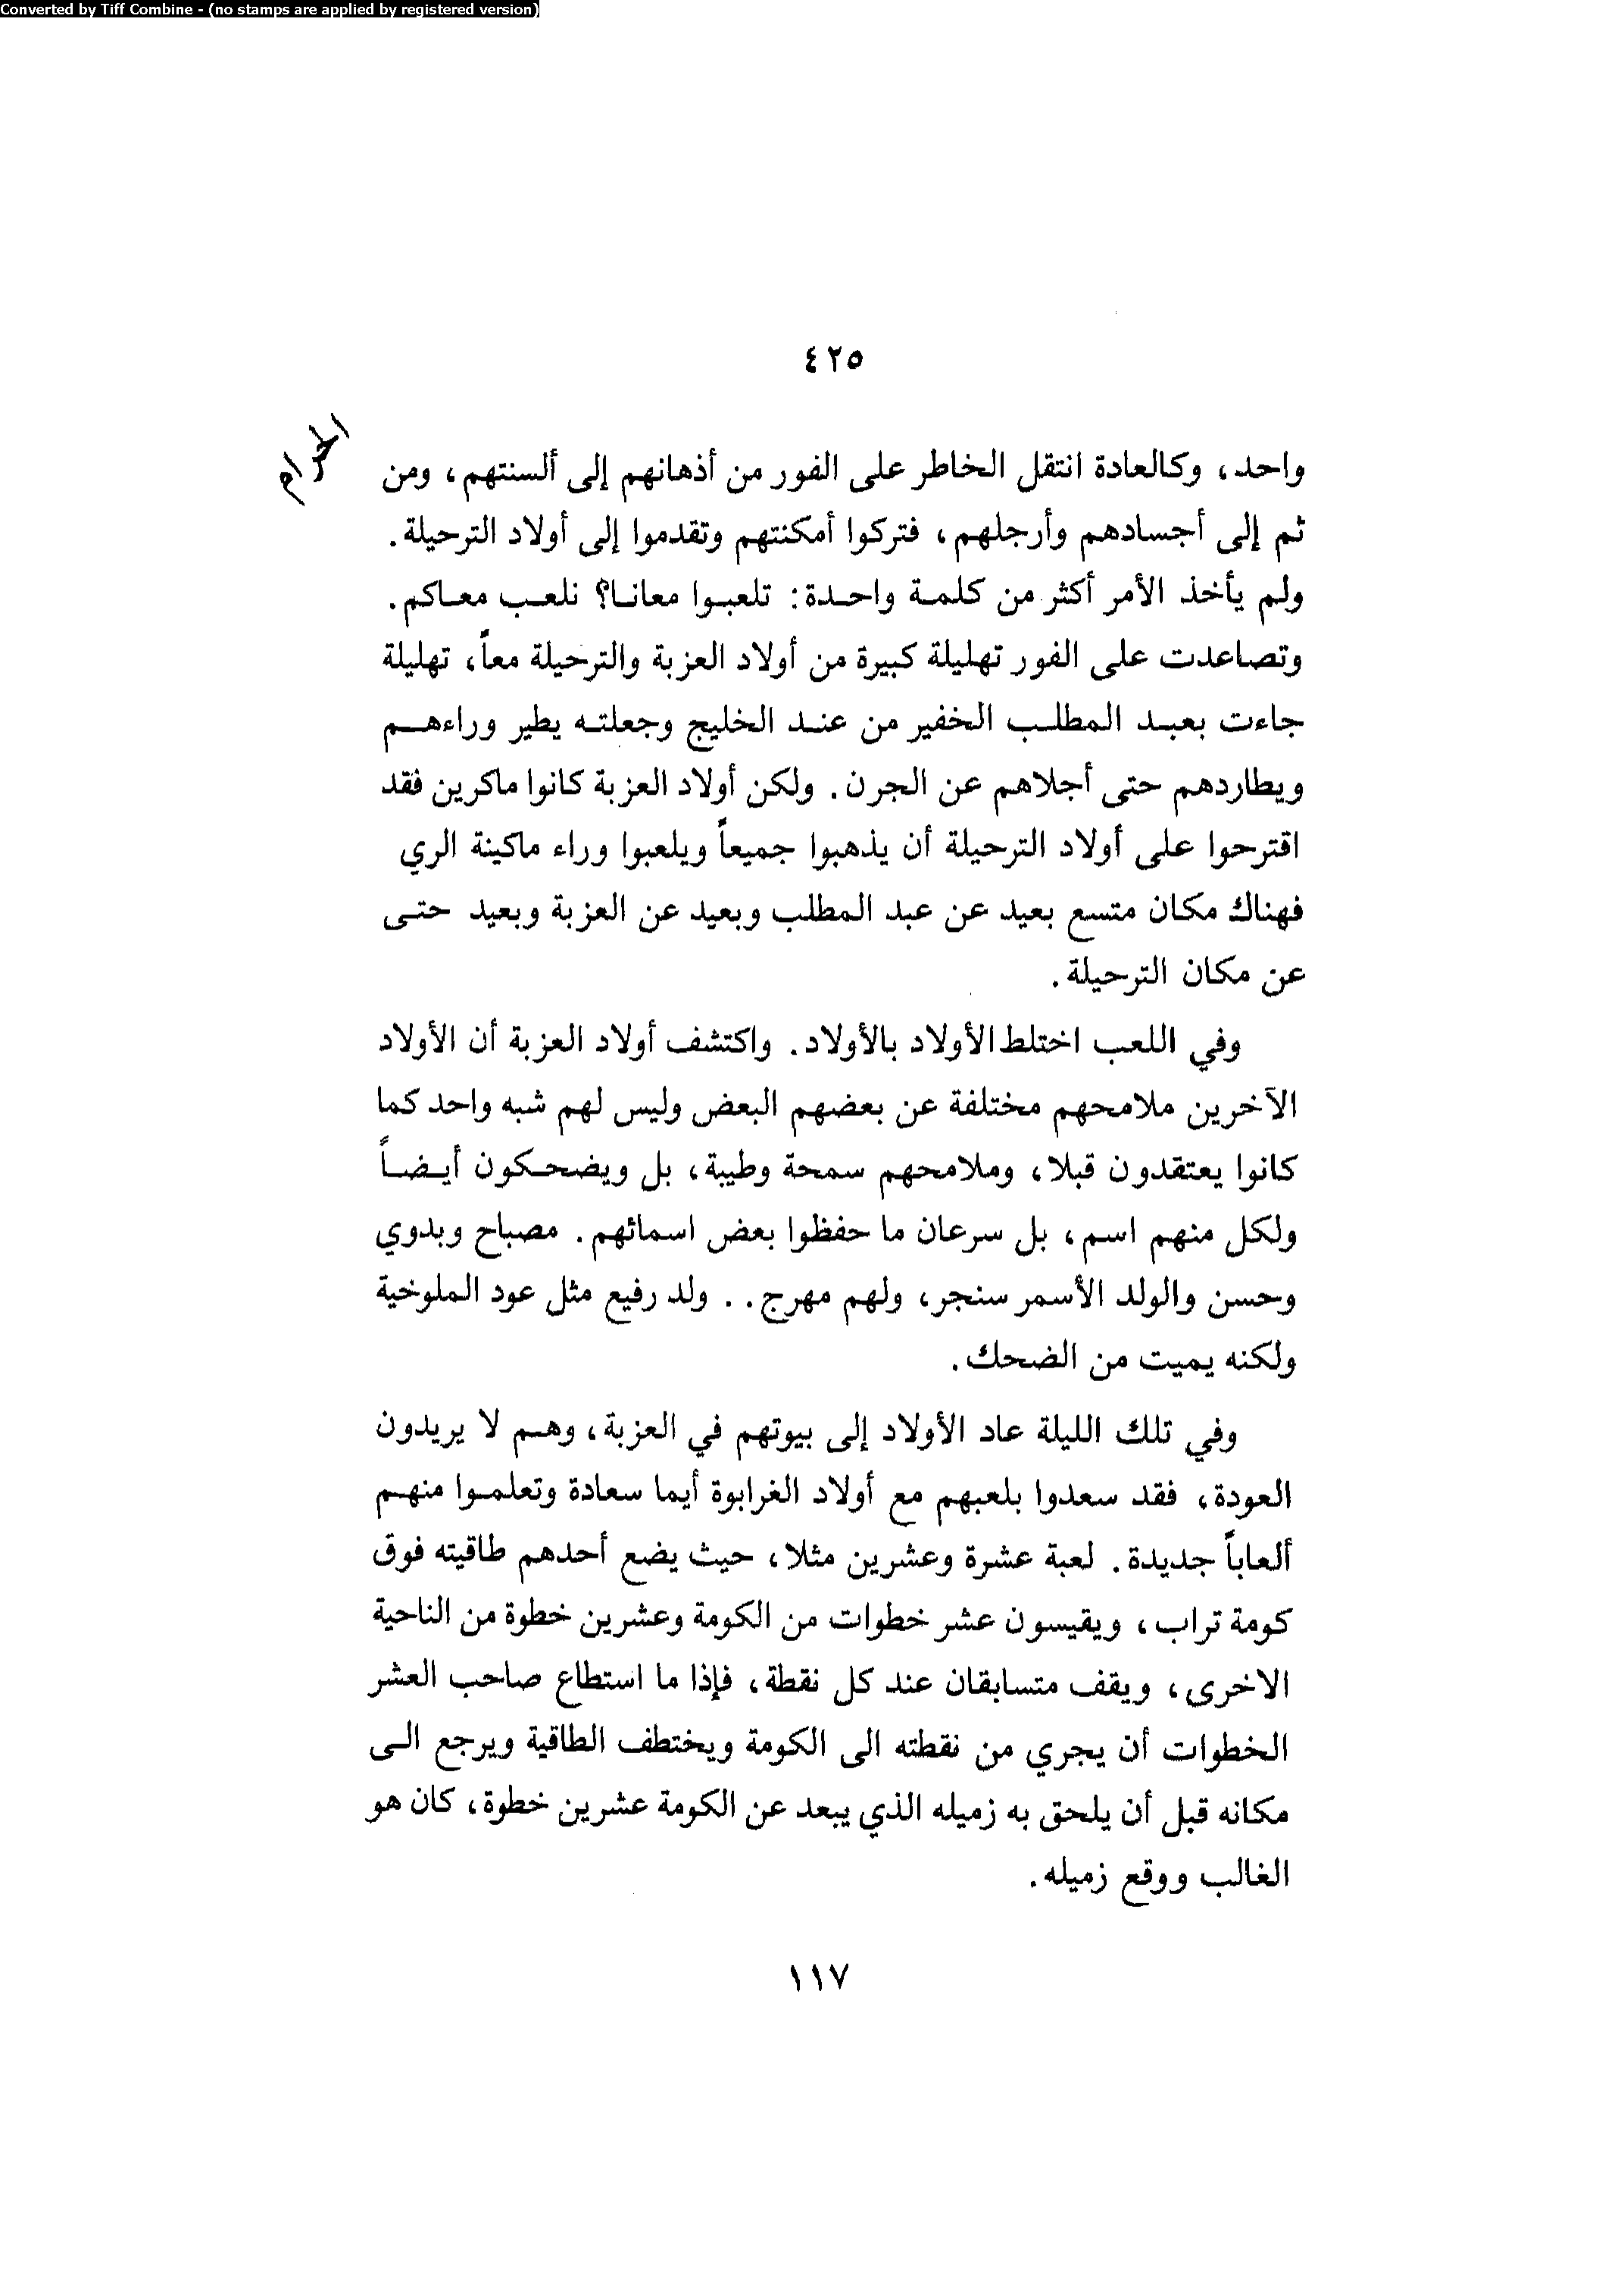 Converted by Tiff Combine - (no stamps are applied by registered version)
٤٢٥
الحرام
واحد، وكالعادة انتقل الخاطر على الفور من أذهانهم إلى ألسنتهم، ومن
ثم إلى أجسادهم وأرجلهم، فتركوا أمكنتهم وتقدموا إلى أولاد الترحيلة.
ولم يأخذ الأمر أكثر من كلمة واحدة: تلعبوا معانا؟ نلعب معاكم.
وتصاعدت على الفور تهليلة كبيرة من أولاد العزبة والترحيلة معاً، تهليلة
جاءت بعبد المطلب الخفير من عند الخليج وجعلته يطير وراءهم
ويطاردهم حتى أجلاهم عن الجرن. ولكن أولاد العزبة كانوا ماكرين فقد
اقترحوا على أولاد الترحيلة أن يذهبوا جميعاً ويلعبوا وراء ماكينة الري
فهناك مكان متسع بعيد عن عبد المطلب وبعيد عن العزبة وبعيد حتى
عن مكان الترحيلة.
وفي اللعب اختلط الأولاد بالأولاد. واكتشف أولاد العزبة أن الأولاد
الآخرين ملامحهم مختلفة عن بعضهم البعض وليس لهم شبه واحد كما
كانوا يعتقدون قبلا، وملامحهم سمحة وطيبة، بل ويضحكون أيضاً
ولكل منهم اسم، بل سرعان ما حفظوا بعض اسمائهم. مصباح وبدوي
وحسن والولد الأسمر سنجر، ولهم مهرج.. ولد رفيع مثل عود الملوخية
ولكنه يميت من الضحك.
وفي تلك الليلة عاد الأولاد إلى بيوتهم في العزبة، وهم لا يريدون
العودة، فقد سعدوا بلعبهم مع أولاد الغرابوة أيما سعادة وتعلموا منهم
ألعاباً جديدة. لعبة عشرة وعشرين مثلا، حيث يضع أحدهم طاقيته فوق
كومة تراب، ويقيسون عشر خطوات من الكومة وعشرين خطوة من الناحية
الاخرى، ويقف متسابقان عند كل نقطة، فإذا ما استطاع صاحب العشر
الخطوات أن يجري من نقطته الى الكومة ويختطف الطاقية ويرجع الى
مكانه قبل أن يلحق به زميله الذي يبعد عن الكومة عشرين خطوة، كان هو
الغالب ووقع زميله.
١١٧